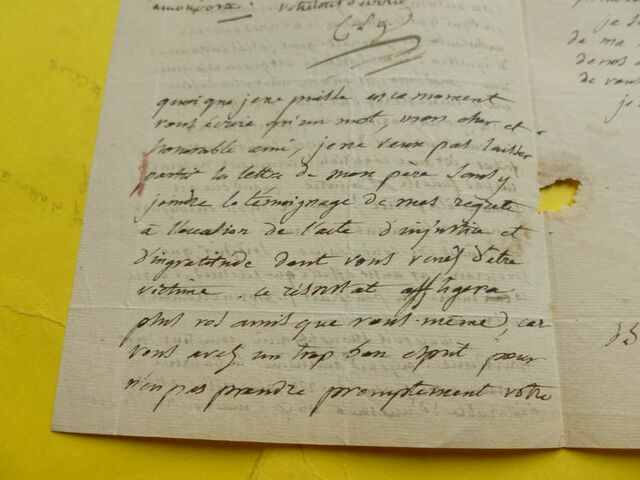 quoique je ne puisse en ce moment
vous écrire qu'un mot, mon cher et
honorable ami, je ne veux pas laisser
partir la lettre de mon pere sans y
joindre le témoignage de mes regrets
à l'occasion de l'acte d'injustice et
d'ingratitude dont vous venés d'être
victime. ce résultat affligera
plus vos amis que vous même, car
vous avés un trop bon esprit pour
n'en pas prendre promptement votre
je
de ma
de nos
de vous
je